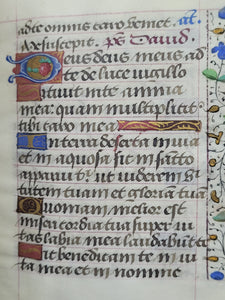 ad te omnis caro veniet. ať.
Me suscepit. pš David.
Deus deus meus ad
te de luce vigillo
Sitivit in te anima
mea: quam multipliciť
tibi caro mea
In terra deserta in via
et in aquosa sic in sancto
apparui tibi: ut viderem vir
tutem tuam et gloriam tuā
Quoniam melior est
misericordia tua super vi
tas labia mea laudabunt te
Sic benedicam te in vi
ta mea et in nomine